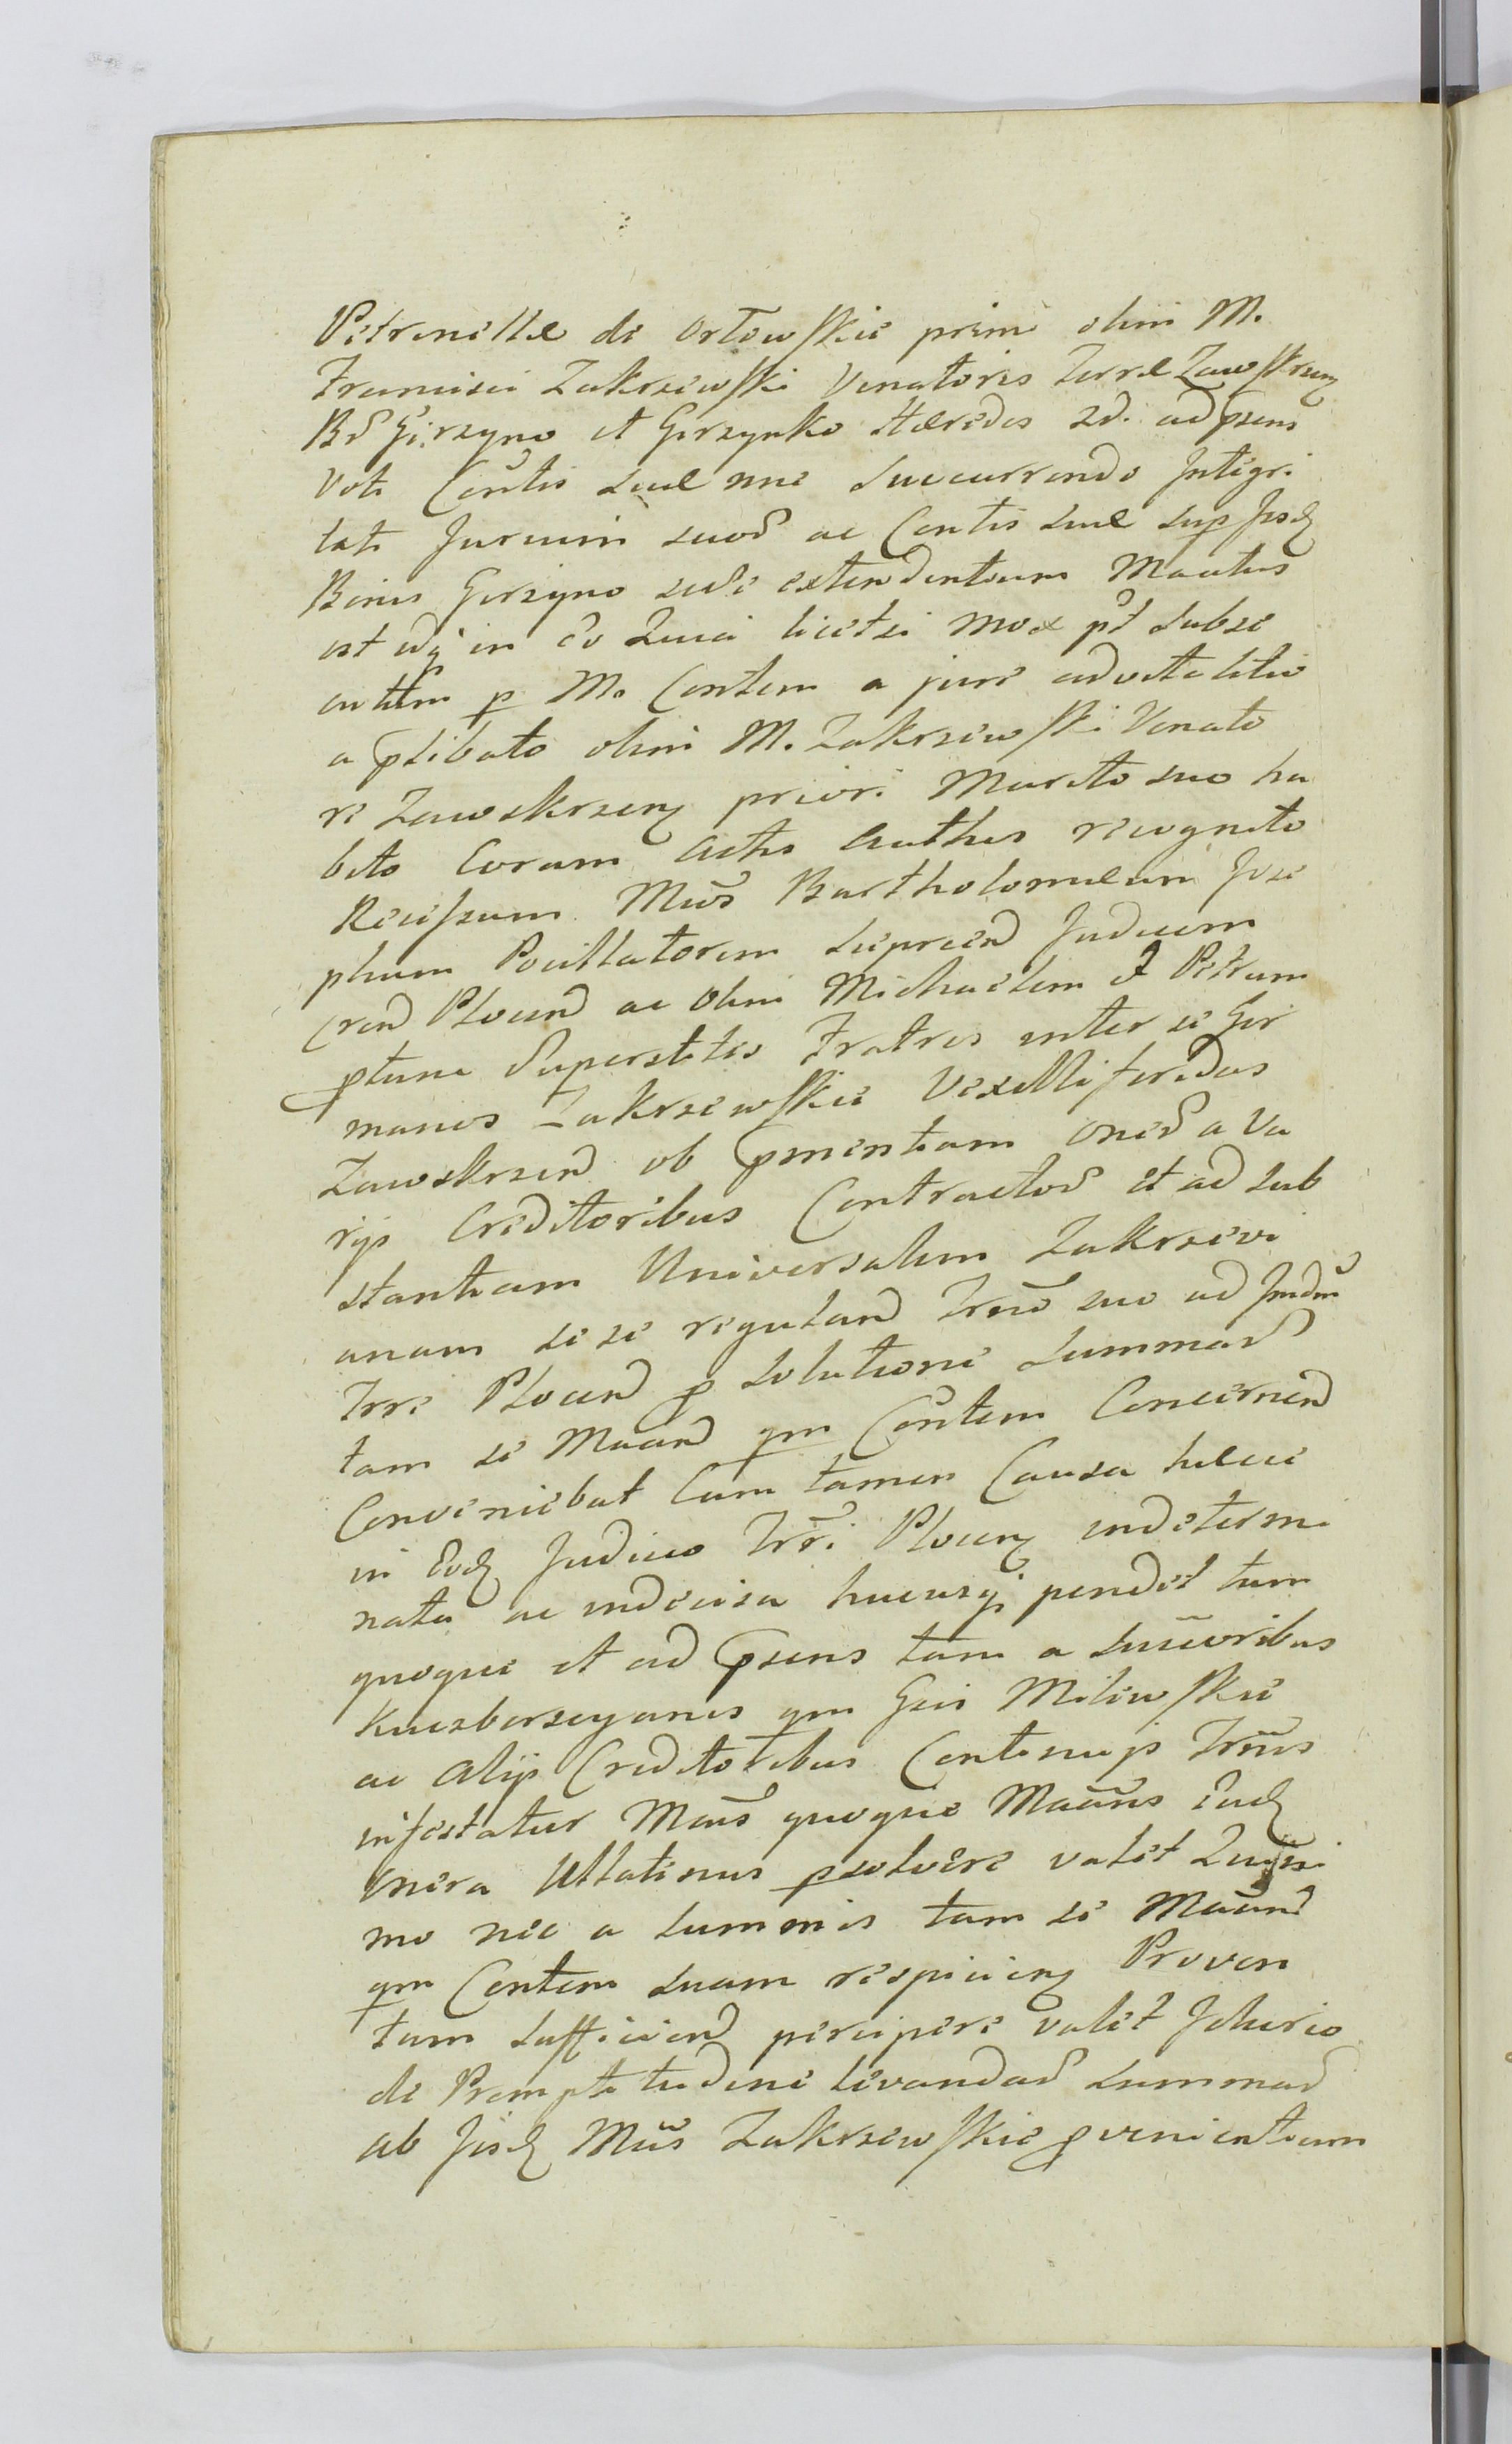 Petronellæ de Orłowskie primi olim M.
Francisci Zakrzewski Venatoris Terræ Zawskrzen
Bd Girzyno et Girzynko Hæredis 2d. ad psens
Voti Contis suæ nne Succurrendo Integri
tati Jurium suor ac Contis suæ sup Jisd
Bonis Girzyno sese extendentium Maritus
est in eo Quia licet si mox pt subse
cutam p M. Contem a jure advitalitio
a plibato olim M. Zakrzewski Venato
re Zawskrzen priori Marito suo ha
bito Coram Actis Authis recognito
Recessum Mus Bartholomæum Jose
phum Pocillatorem Sieprcen Judicem
Cren Plocen ac olim Michaelem & Petrum
ptune Superstites Fratres inter se Ger
manos Zakrzewskie Vexilliferidas
Zawskrzen ob pmentiam oner a Va
rijs Creditoribus Contractor et ad sub
stantiam Universalem Zakrzevi
anam sese regulan Trno suo ad Judm
Trri Plocen p solutione summar
tam se Maan qm Contem Concernen
Conveniebat Cum tamen Causa hæcce
in Eod Judicio Trri Plocen indetermi
nata ac indecisa hucusq pendet tum
quoque et ad psens tam a Succoribus
Kuczborzeyanis qm Gsi Milewskie
ac Alijs Creditoribus Continuis Trnis
infestatur Mus quoque Maans Ead
Onera Ullatenus psolvere valet Quissi
mo nec a summis tam se Maan
qm Contem suam respicien Proven
tum sufficien percipere valet Idcirco
de Promptitudine levandar summar
ab Jisd Mis Zakrzewskie pvenientium